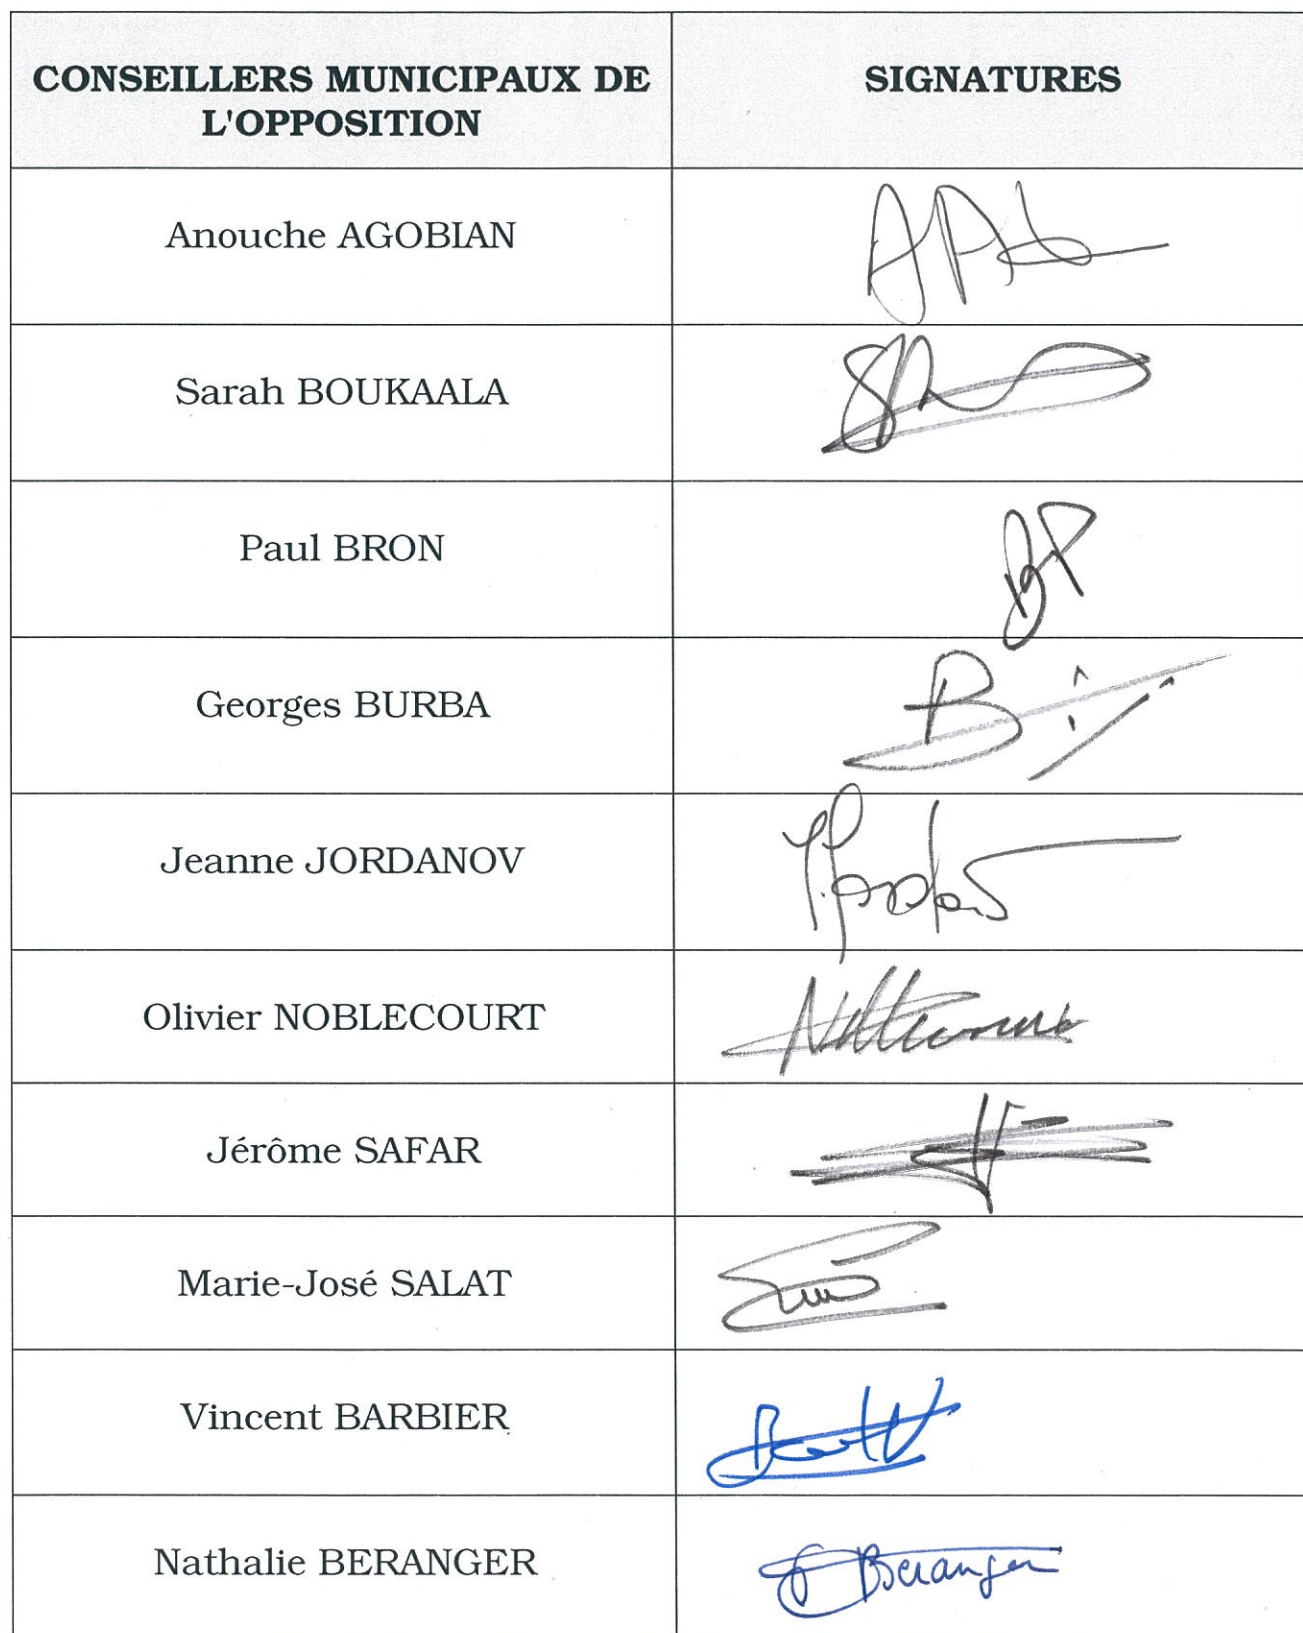 CONSEILLERS MUNICIPAUX DE
L'OPPOSITION
SIGNATURES
Anouche AGOBIAN
Sarah BOUKAALA
Paul BRON
BP
Georges BURBA
Jeanne JORDANOV
Olivier NOBLECOURT
Jérôme SAFAR
Marie-José SALAT
Vincent BARBIER
Nathalie BERANGER
Beranger